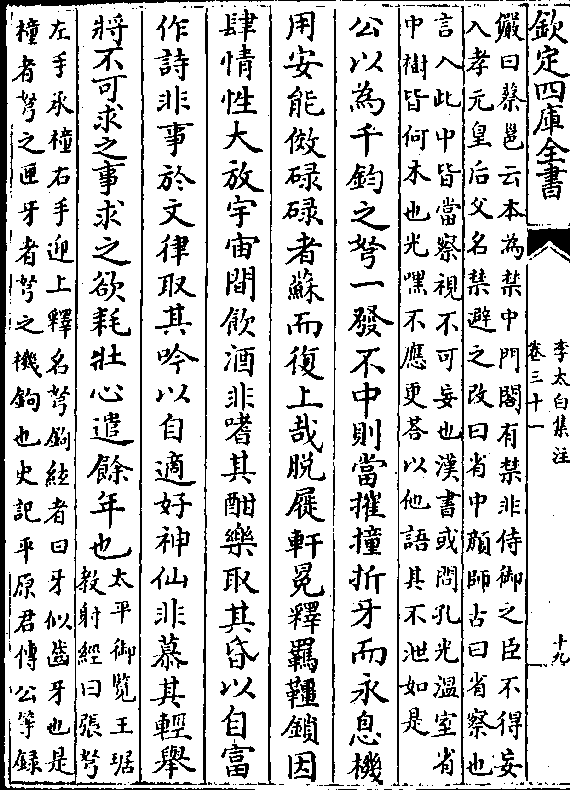 欽定四庫全書
李太白集注
卷三十一
十九
儼曰蔡邕云本為禁中門閤有禁非侍御之臣不得妄
入孝元皇后父名禁避之改曰省中顔師古曰省察也
言入此中皆當察視不可妄也漢書或問孔光溫室省
中樹皆何木也光嘿不應更荅以他語其不泄如是
公以為千鈞之弩一發不中則當摧撞折牙而永息機
用安能傚碌碌者蘇而復上哉脱屣軒冕釋羈韁鎖因
肆情性大放宇宙間飲酒非嗜其酣樂取其昏以自富
作詩非事於文律取其吟以自適好神仙非慕其輕舉
將不可求之事求之欲耗壯心遣餘年也
太平御覽王琚
教射經曰張弩
左手承橦右手迎上釋名弩鉤絃者曰牙似齒牙也是
橦者弩之匣牙者弩之機鉤也史記平原君傳公等録